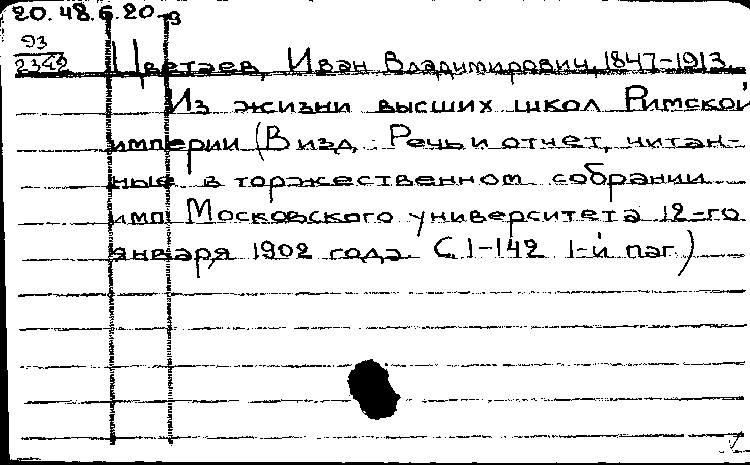 20.48.6.20-9
93
2342
Цветаев, Иван Владимирович, 1847-1913.
Из жизни высших школ Римской
империи (В изд.: Речь и отчет, читан-
ные в торжественном собрании
имп. Московского университета 12-го
января 1902 года. С. 1-142 1-й паг.)